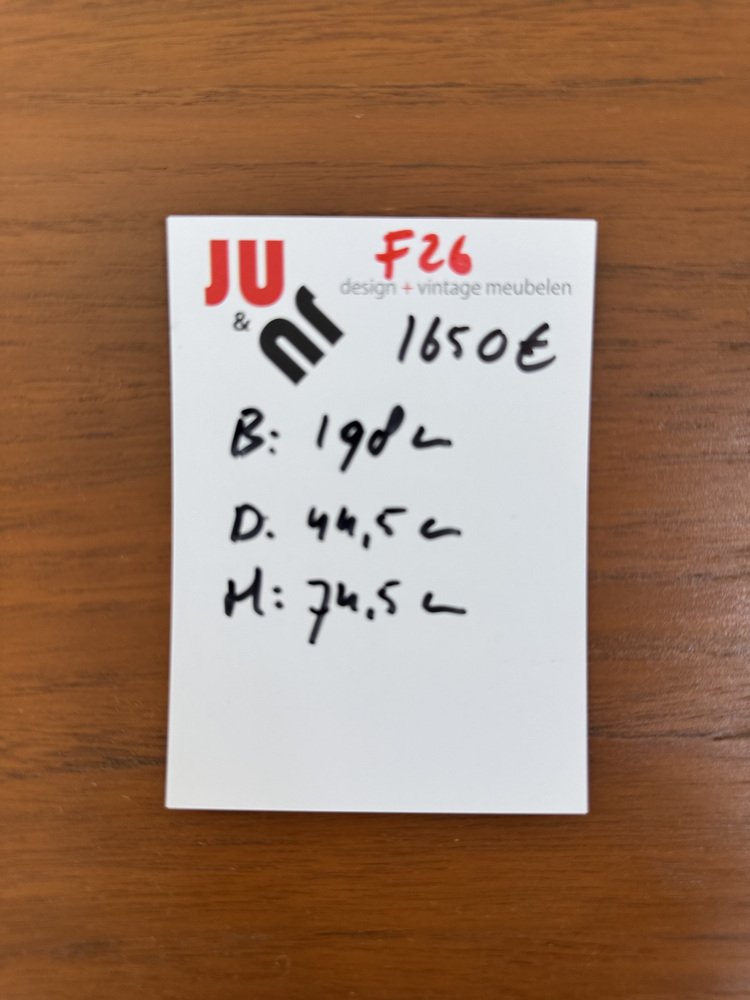 JU
&
JU
F26
design + vintage meubelen
1650€
B: 198 cm
D. 44,5 cm
H: 74,5 cm